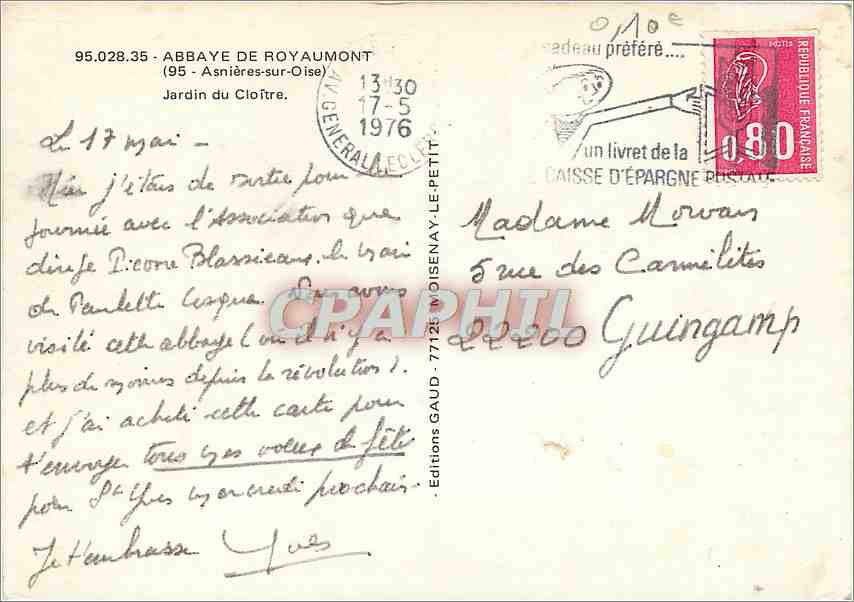 95.028.35 - ABBAYE DE ROYAUMONT
(95 - Asnières-sur-Oise)
Jardin du Cloître.
Le 17 mai -
Hier j'étais de sortie pour la
journée avec l'Association que
dirige Pierre
de Paulette. Nous avons
visité cette abbaye (où il n'y a
plus de moines depuis la révolution).
et j'ai acheté cette carte pour
t'envoyer tous mes voeux de fête
pour St Yves mercredi prochain.
Je t'embrasse Yves
- Editions GAUD - 77125 MOISENAY-LE-PETIT -
13 H 30
17-5
1976
AV. GENERAL LECLERC
0,10 €
cadeau préféré....
un livret de la
CAISSE D'ÉPARGNE POSTALE
REPUBLIQUE FRANÇAISE
POSTES
0,80
Madame Morvan
5 rue des Carmélites
22200 Guingamp
CPAPHIL